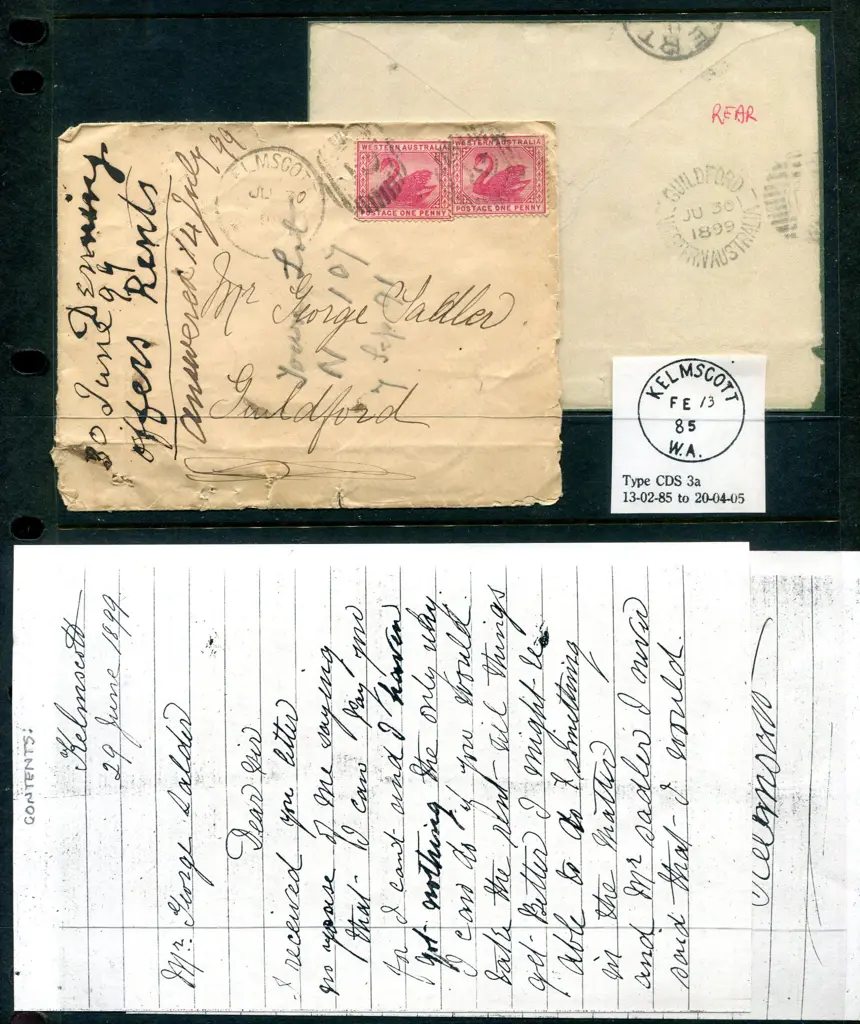 REAR
GUILDFORD
JU 30
1899
WESTERN AUSTRALIA
WESTERN AUSTRALIA
POSTAGE ONE PENNY
WESTERN AUSTRALIA
POSTAGE ONE PENNY
KELMSCOTT
JU 30
Mr George Sadler
Guildford
30 June 99
Denning
offers Rents
answered 14 July 99
Lot
N 107
KELMSCOTT
FE 13
85
W.A.
Type CDS 3a
13-02-85 to 20-04-05
CONTENTS:
Kelmscott
29 June 1899
Mr George Salder
Dear Sir
I received you letter
of me saying
that I can pay you
for I cant and I haven
got nothing the only why
I can do if you would
take the rent til things
get Better I might be
able to do somthing
in the matter
and Mr Sadler I never
said that I would.
Kelmscott